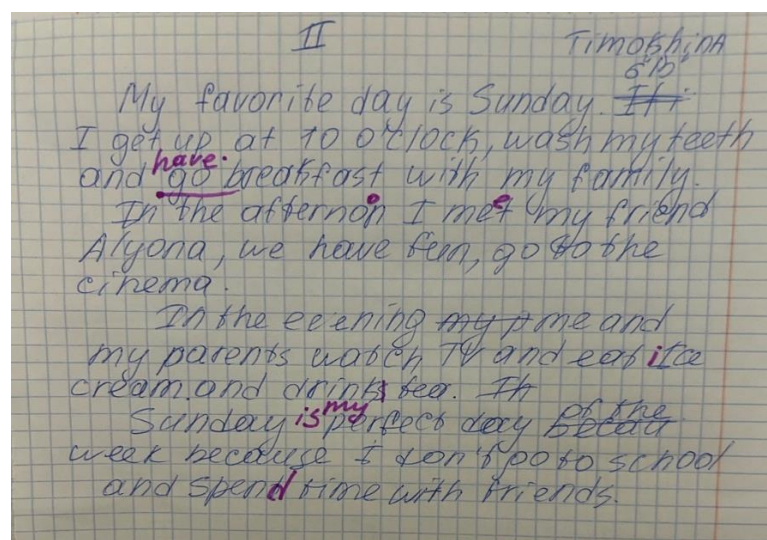 II
Timoshina
6"D"
My favorite day is Sunday. It i
I get up at 10 o'clock, wash my teeth
have.
and go breakfast with my family.
In the afternoon I meet my friend
Alyona, we have fun, go to the
cinema.
In the evening my p me and
my parents watch TV and eat ice
cream and drink tea. It
Sunday is my perfect day becau of the
week because I don't go to school
and spend time with friends.